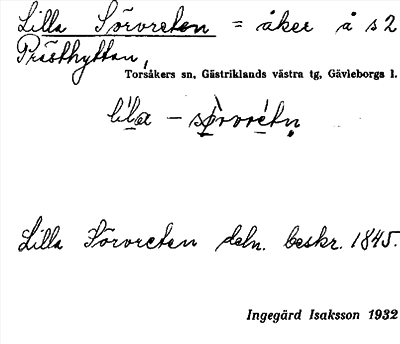 Lilla Sörvreten = åker å s2
Prästhyttan,
Torsåkers sn, Gästriklands västra tg, Gävleborgs l.
Lilla Sörvreten deln. beskr. 1845.
Ingegärd Isaksson 1932